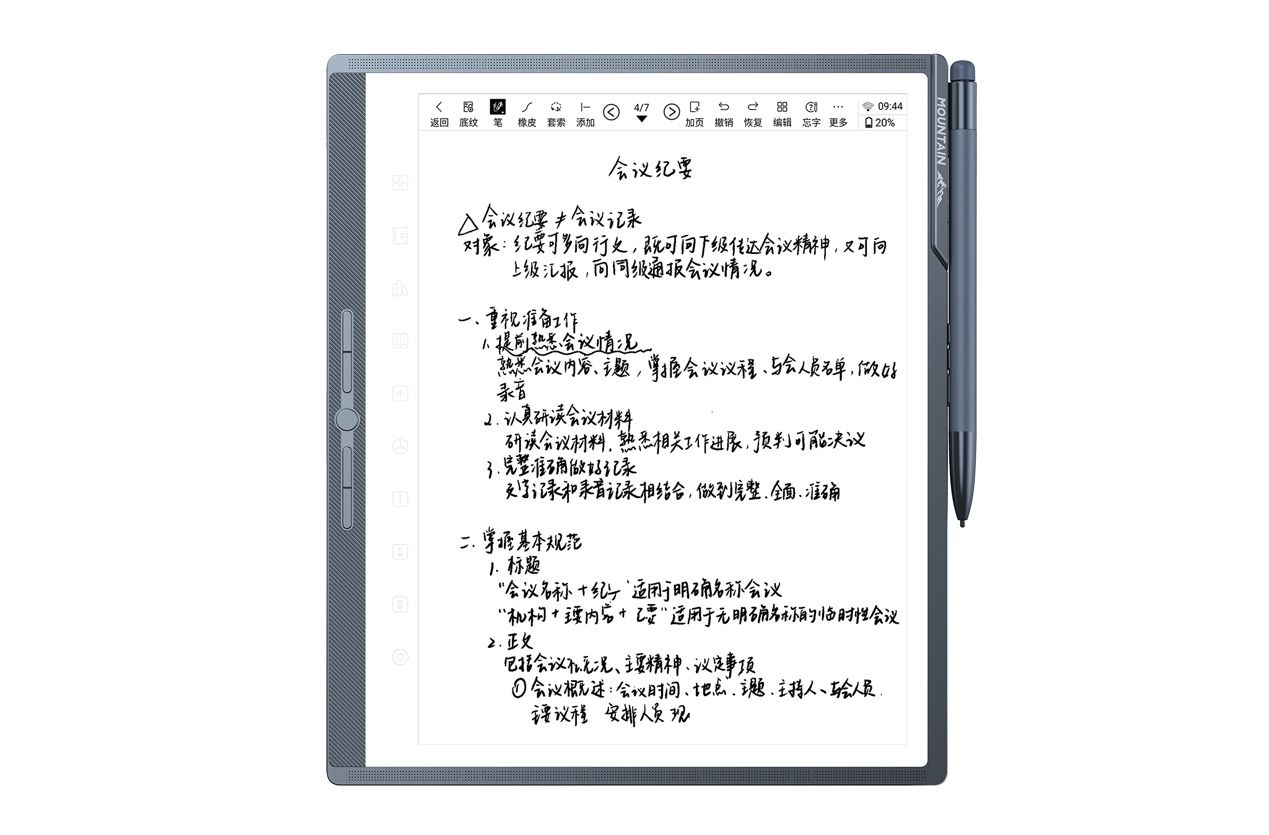 返回 底纹 笔 橡皮 套索 添加 4/7 加页 撤销 恢复 编辑 忘字 更多 09:44 20%
MOUNTAIN
会议纪要
△会议纪要≠会议记录
对象：纪要可多向行文，既可向下级传达会议精神，又可向
上级汇报，向同级通报会议情况。
一、重视准备工作
1.提前熟悉会议情况
熟悉会议内容、主题，掌握会议议程、与会人员名单，做好
录音
2.认真研读会议材料
研读会议材料，熟悉相关工作进展，预判可能决议
3.完整准确做好记录
文字记录和录音记录相结合，做到完整、全面、准确
二、掌握基本规范
1.标题
“会议名称+纪 适用于明确名称会议
“机构+主要内容+ 要”适用于无明确名称的临时性会议
2.正文
包括会议 况、主要精神、议定事项
①会议概述：会议时间、地点、主题、主持人、与会人员
主要议程 安排人员 现